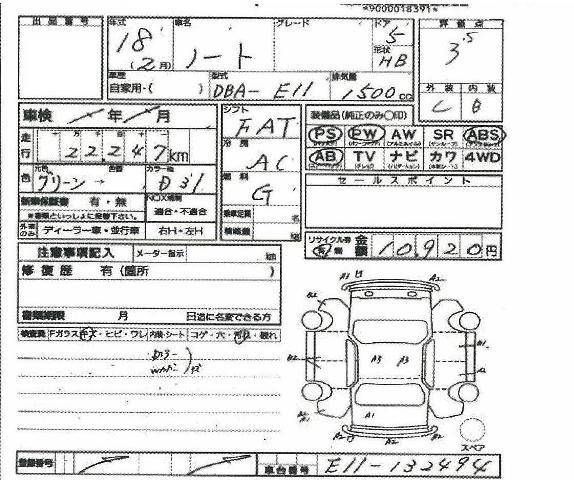 *9000018391*
出品番号
年式 車名 グレード ドア 評価点
18 ノート 5 3.5
(2月)
形状
HB
車歴 型式 排気量
自家用・( ) DBA-E11 1500cc
外装 内装
C B
車検 年 月
シフト
FAT
装備品(純正のみ○印)
PS PW AW SR ABS
AB TV ナビ カワ 4WD
走行
22,247km
冷房
AC
色 元色 色番 カラーNo.
グリーン→ D31
燃料
G
セールスポイント
新車保証書 有・無
NOX規制
適合・不適合
乗車定員 名
※書類といっしょに発送下さい。
外車のみ ディーラー車・並行車 右H・左H
積載量 kg
リサイクル券 金額 10,920円
注意事項記入 メーター指示 km
修復歴 有(箇所 )
書類期限 月 日迄に名変できる方
検査員 Fガラスキズ・ヒビ・ワレ 内装・シート コゲ・穴・汚れ・破れ
A3 A2
A2
B2 A1
A3 A3
A2
A2
A1 A1
A2 A2
スペア
登録番号 車台番号 E11-132494